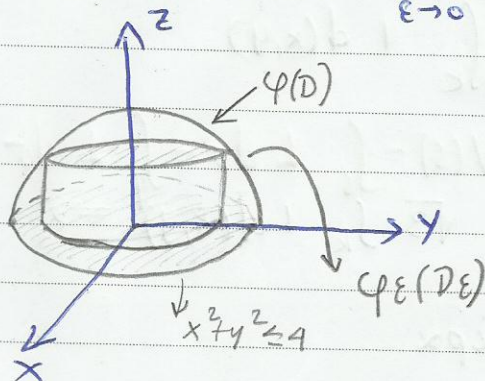 ε→0
Z
φ(D)
Y
φε(Dε)
x²+y²≤4
X